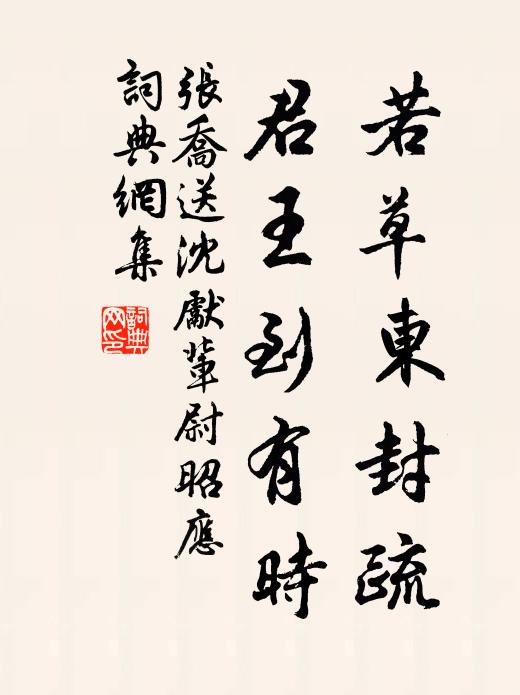 若草東封疏
君王到有時
張喬送沈獻輩尉昭應
詞典網集
詞典
网印